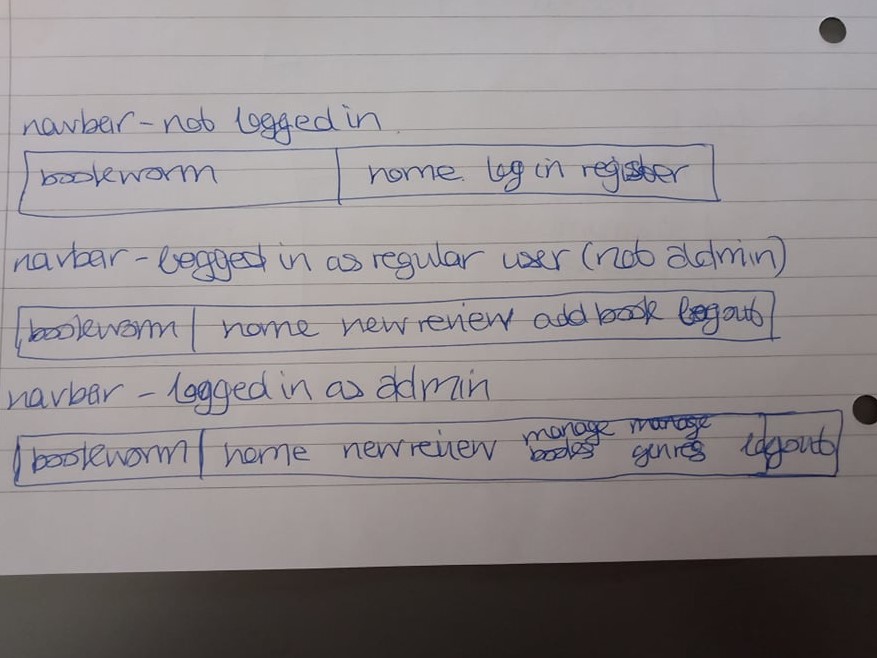 navbar - not logged in
bookworm home log in register
navbar - logged in as regular user (not admin)
bookworm home new review add book logout
navbar - logged in as admin
bookworm home new review manage books manage genres logout